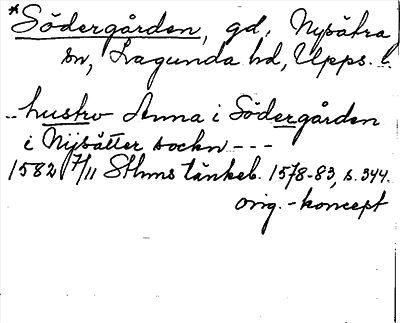 *Södergården, gd, Nysätra
sn, Lagunda hd, Upps. ..
.. hustro Anna i Södergården
i Nijsätter sockn - - -
1582 7/11 Sthms tänkeb. 1578-83, s. 344.
orig.-koncept